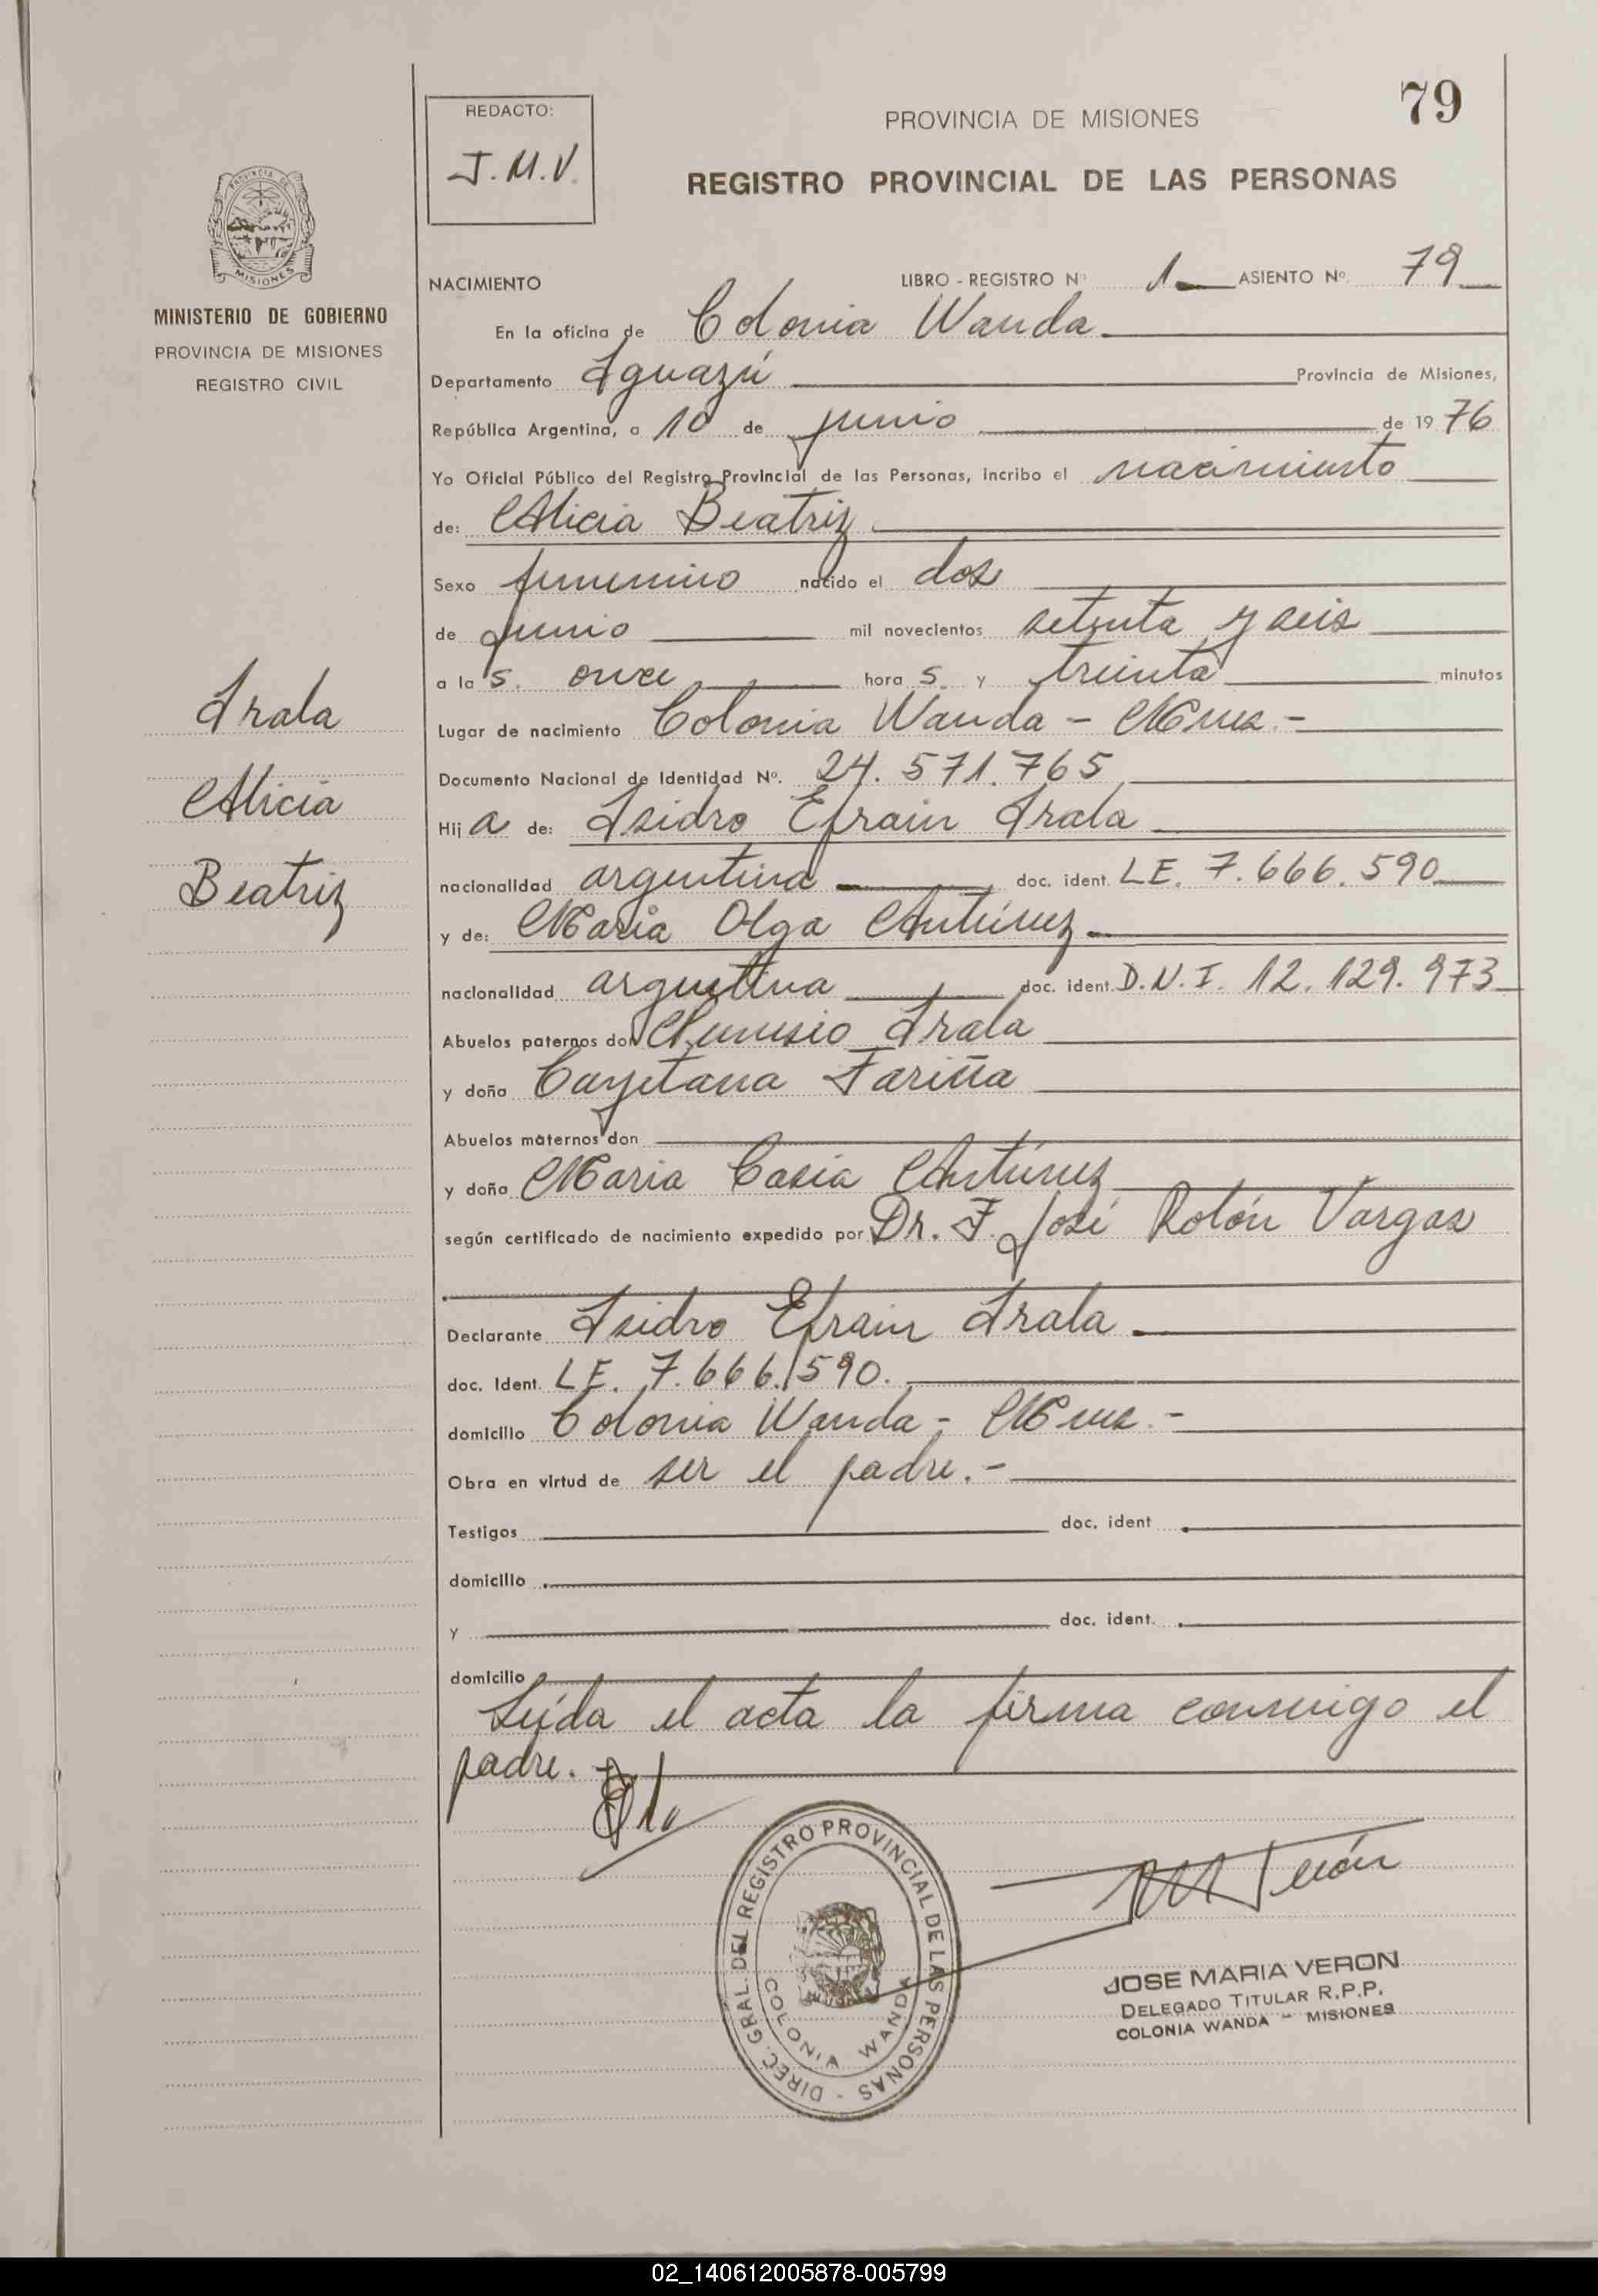 79
REDACTO:
J.M.V.
PROVINCIA DE MISIONES
REGISTRO PROVINCIAL DE LAS PERSONAS
PROVINCIA DE
MISIONES
MINISTERIO DE GOBIERNO
PROVINCIA DE MISIONES
REGISTRO CIVIL
NACIMIENTO LIBRO - REGISTRO Nº 1 ASIENTO Nº. 79
En la oficina de Colonia Wanda
Departamento Iguazú Provincia de Misiones,
República Argentina, a 10 de junio de 1976
Yo Oficial Público del Registro Provincial de las Personas, incribo el nacimiento
de: Alicia Beatriz
Sexo femenino nacido el dos
de junio mil novecientos setenta y seis
a las. once horas. y treinta minutos
Lugar de nacimiento Colonia Wanda - Mnes.-
Documento Nacional de Identidad Nº. 24.571.765
Hija de: Isidro Efrain Irala
nacionalidad argentina doc. ident. LE. 7.666.590
y de: Maria Olga Antúnez
nacionalidad argentina doc. ident. D.N.I. 12.129.973
Abuelos paternos don Irala
y doña Cayetana Fariña
Abuelos maternos don
y doña Maria Casia Antúnez
según certificado de nacimiento expedido por Dr. F. José Rolón Vargas
Declarante Isidro Efrain Irala
doc. Ident. LE. 7.666.590.
domicilio Colonia Wanda - Mnes.-
Obra en virtud de ser el padre.-
Testigos doc. ident
domicilio
y doc. ident.
domicilio
Leída el acta la firma conmigo el
padre.-
Irala
Alicia
Beatriz
DIREC. GRAL. DEL REGISTRO PROVINCIAL DE LAS PERSONAS -
COLONIA WANDA
JOSE MARIA VERON
DELEGADO TITULAR R.P.P.
COLONIA WANDA - MISIONES
02_140612005878-005799